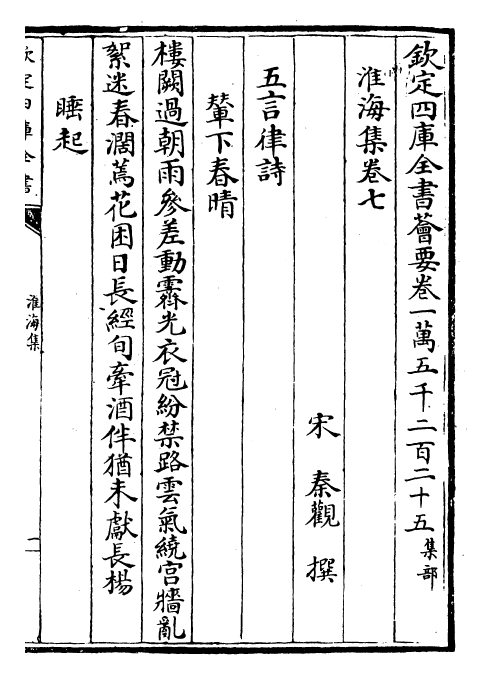 欽定四庫全書薈要卷一萬五千二百二十五集部
淮海集卷七
宋 秦觀 撰
五言律詩
輦下春晴
樓闕過朝雨參差動霽光衣冠紛禁路雲氣繞宮牆亂
絮迷春濶蔫花困日長經旬牽酒伴猶未獻長楊
睡起
欽定四庫全書
淮海集
一